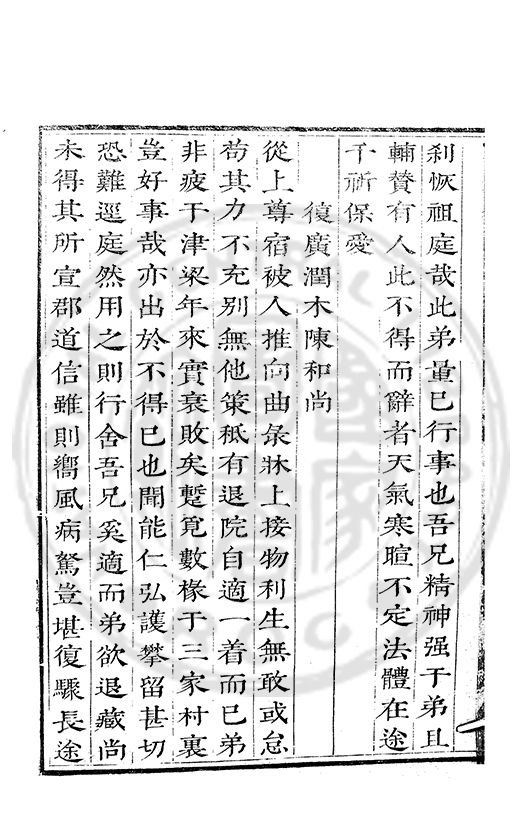 剎恢祖庭哉此弟量已行事也吾兄精神强于弟且
輔贊有人此不得而辭者天氣寒暄不定法體在途
千祈保愛
復廣潤木陳和尚
從上尊宿被人推向曲彔牀上接物利生無敢或怠
苟其力不充別無他策秪有退院自適一着而已弟
非疲于津梁年來實衰敗矣蹔覓數椽于三家村裏
豈好事哉亦出於不得已也聞能仁弘護攀留甚切
恐難逕庭然用之則行舍吾兄奚適而弟欲退藏尚
未得其所宣郡道信雖則嚮風病駑豈堪復驟長途